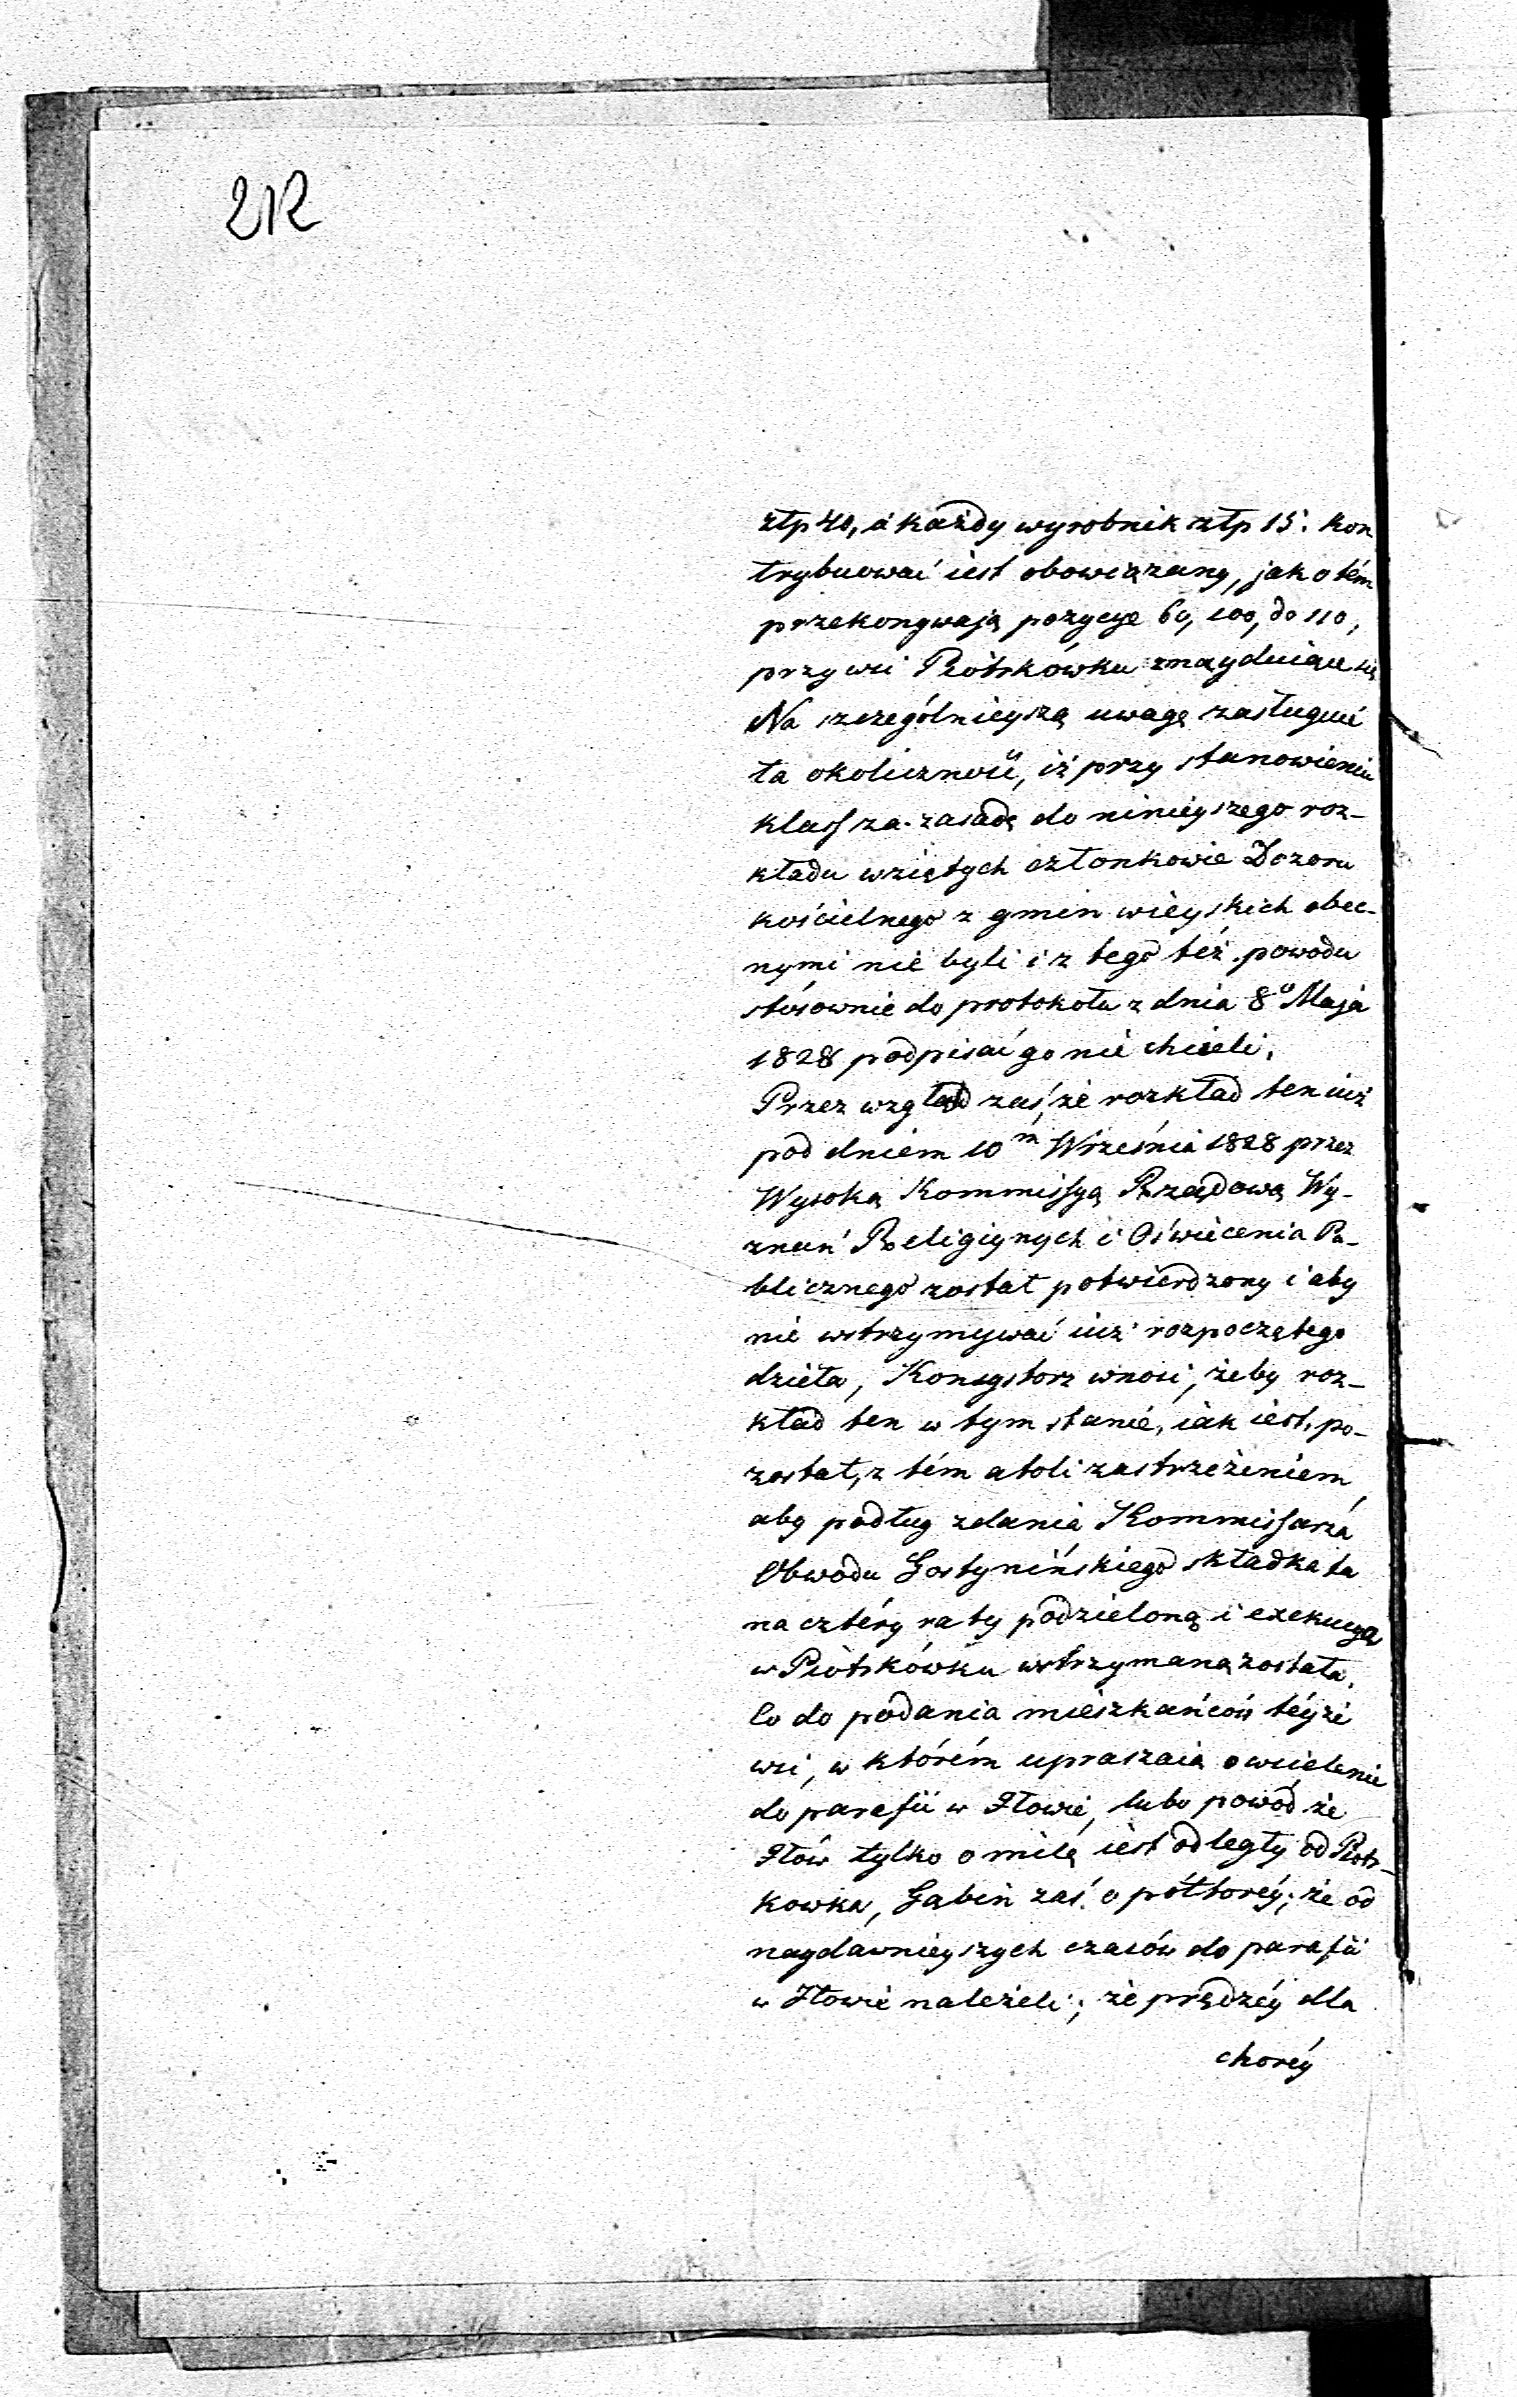 212
złp 40, a każdy wyrobnik złp 15. kon
trybuować iest obowiązany, jak o tém
przekonywają pozycye 60, 100, do 110,
przy wsi Piotrkówku znayduiące się
Na szczególnieyszą uwagę zasługuie
ta okoliczność, iż przy stanowieniu
klass za zasadę do ninieyszego roz-
kładu wziętych członkowie Dozoru
kościelnego z gmin wieyskich obec-
nymi nie byli i z tego też powodu
stósownie do protokołu z dnia 8º Maja
1828 podpisać go nie chcieli.
Przez wzgląd zaś, że rozkład ten iuż
pod dniem 10m Września 1828 przez
Wysoką Kommissyą Rządową Wy-
znań Religiynych i Oświecenia Pu-
blicznego został potwierdzony i aby
nie wstrzymywać iuż rozpoczętego
dzieła, Konsystorz wnosi, żeby roz-
kład ten w tym stanie, iak iest, po-
został, z tém atoli zastrzeżeniem,
aby podług zdania Kommissarza
Obwodu Gostynińskiego składka ta
na cztéry raty podzieloną i exekucya
w Piotrkówku wstrzymaną została.
Co do podania mieszkańców téyże
wsi, w którém upraszaią o wcielenie
do parafii w Iłowie, lubo powód że
Iłów tylko o milę iest odległy od Piotr-
kowka, Gąbin zaś o półtoréy; że od
naydawnieyszych czasów do parafii
w Iłowie należeli; że prędzéy dla
choréy